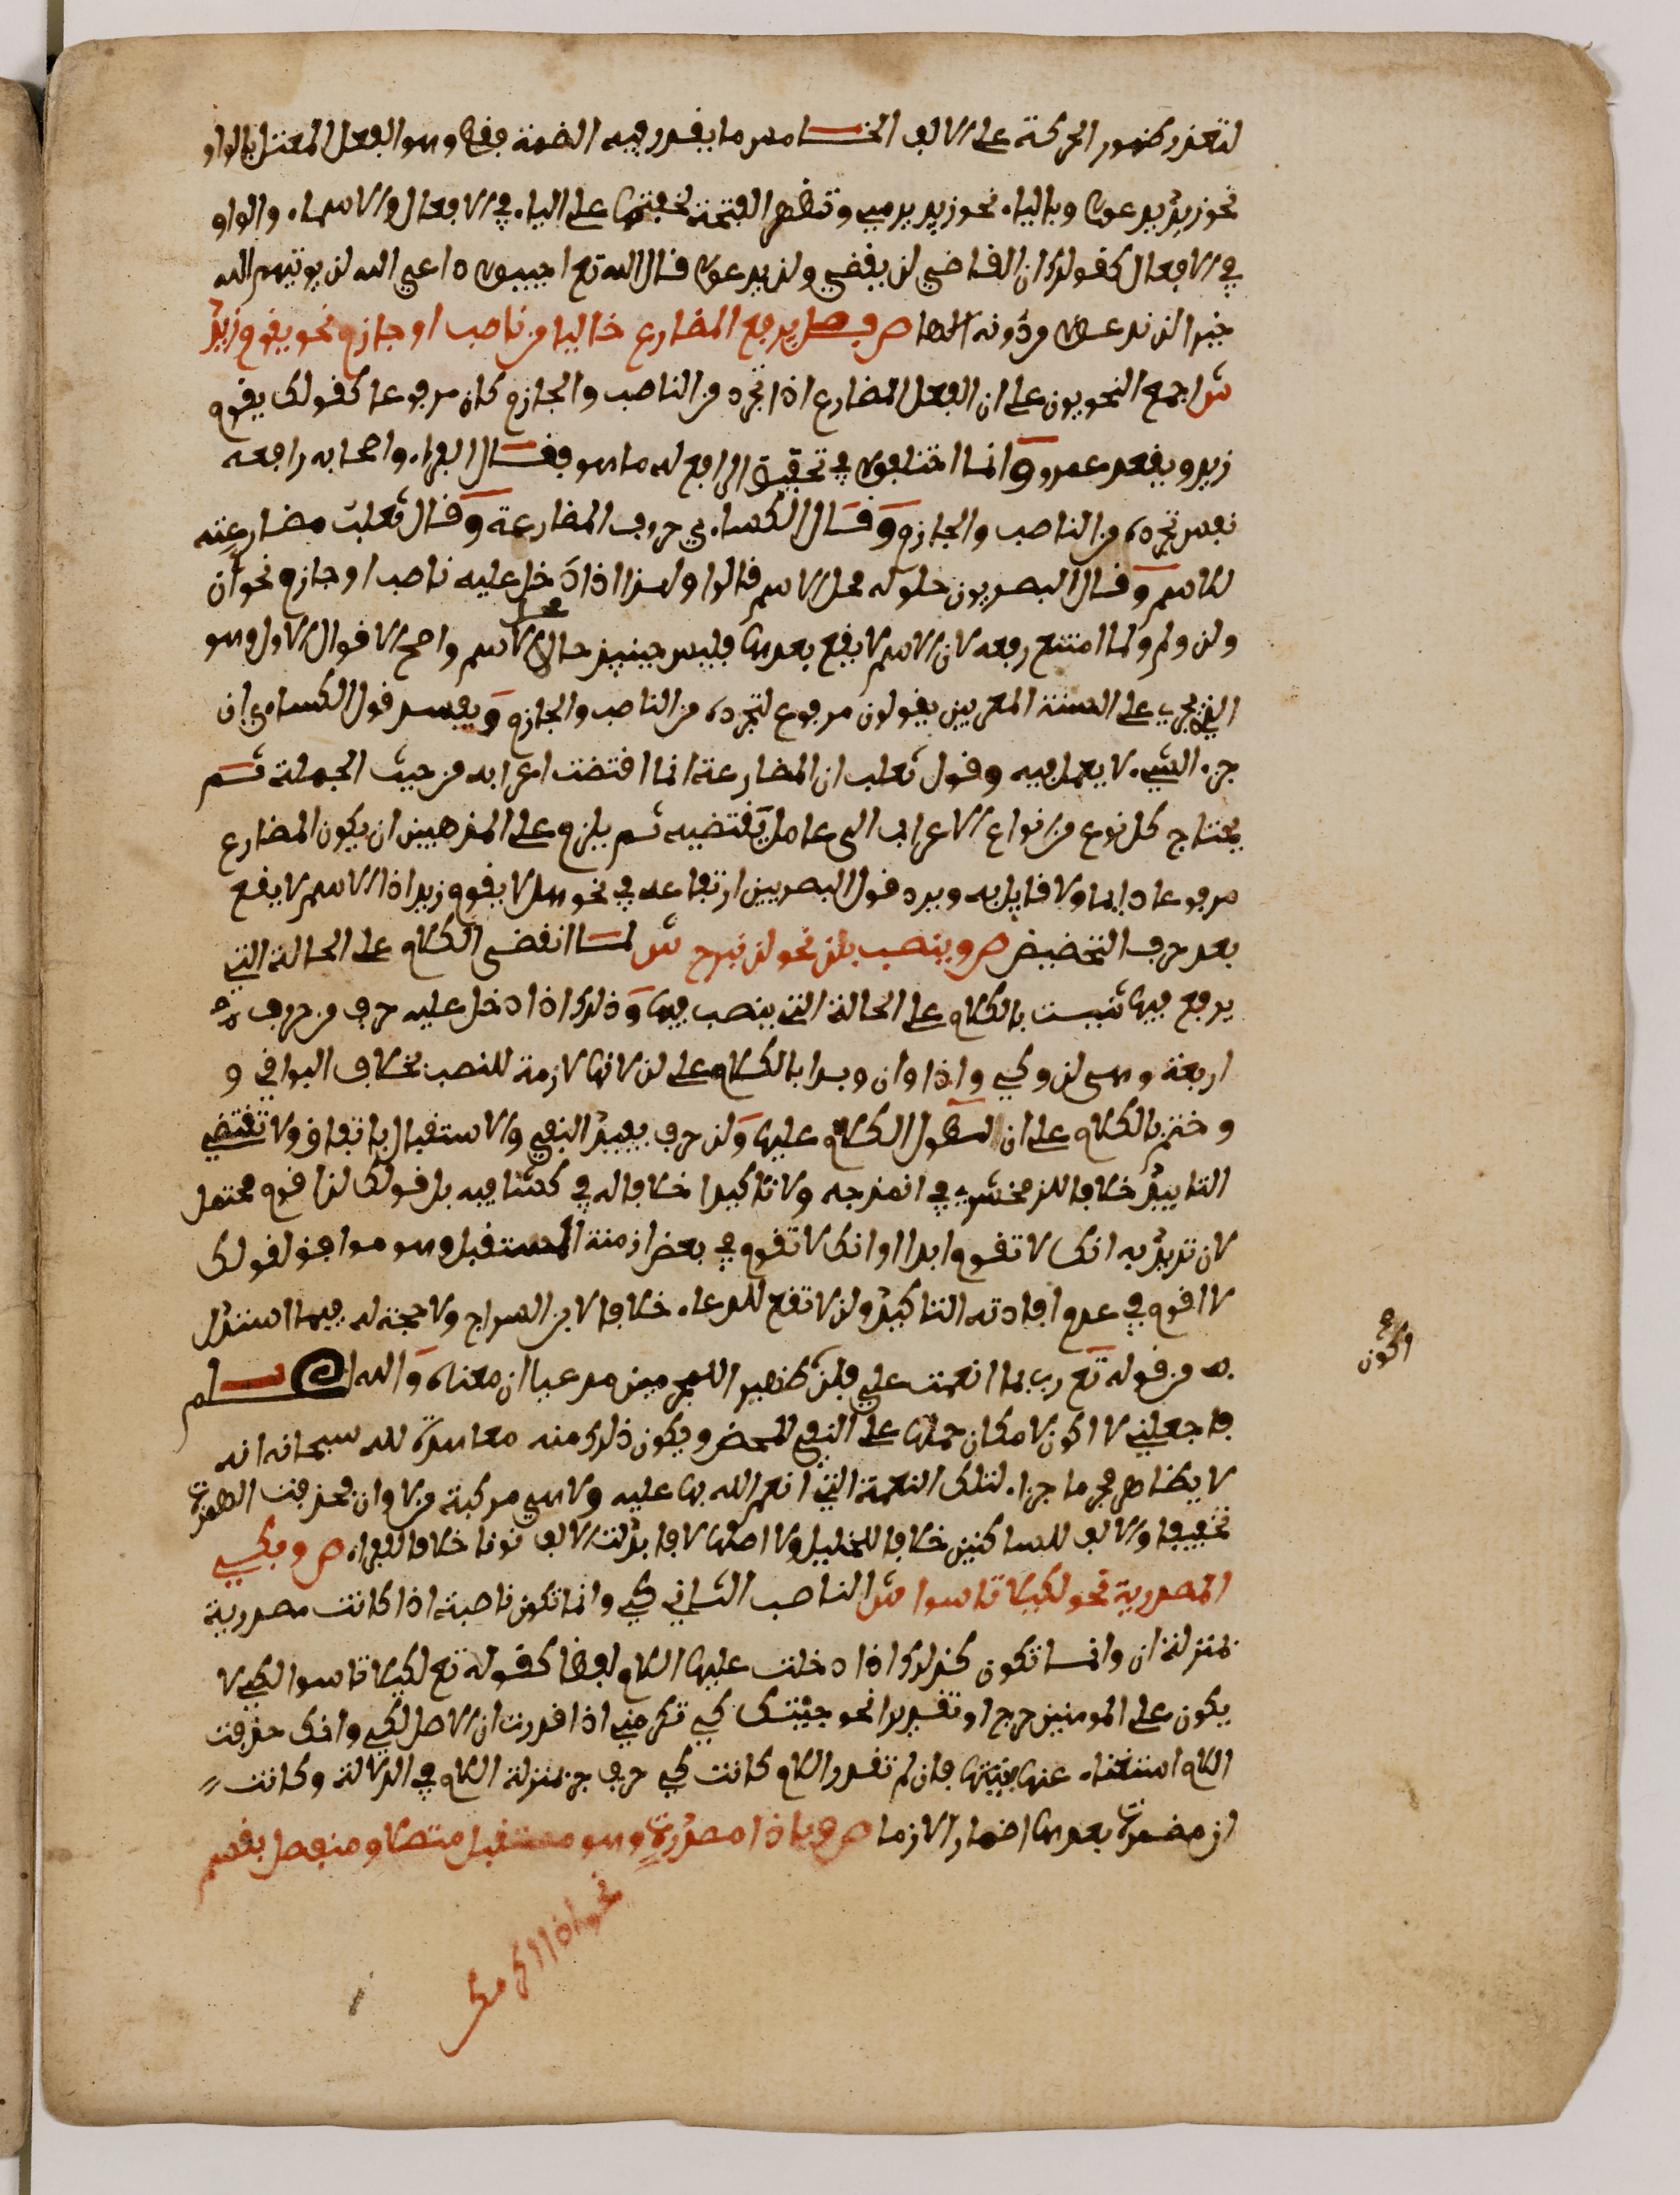 لتعذر ظهور الحركة على الالف الخامس ما يقدر فيه الضمة فقط وهو الفعل المعتل بالواو
نحو زيد يدعوا وبالياء نحو زيد يرمي وتظهر الفتحة لخفتها على الياء في الافعال والاسماء والواو
في الافعال كقولك ان القاضي لن يقضي ولن يدعوا قال الله تع اجيبوا داعي الله لن يوتيهم الله
خيرا لن ندعوا من دونه الها ص فصل يرفع المضارع خاليا من ناصب او جازم نحو يقوم زيد
ش اجمع النحويون على ان الفعل المضارع اذا تجرد من الناصب والجازم كان مرفوعا كقولك يقوم
زيد ويقعد عمرو وانما اختلفوا في تحقيق الرافع له ما هو فقال الفراء واصحابه رافعه
نفس تجرده من الناصب والجازم وقال الكساءي حروف المضارعة وقال ثعلب مضارعته
للاسم وقال البصريون حلوله محل الاسم قالوا ولهذا اذا دخل عليه ناصب او جازم نحو ان
ولن ولم ولما امتنع رفعه لان الاسم لا يقع بعدها فليس حينيذ حالا محل الاسم واصح الاقوال الاول وهو
الذي يجري على السنة المعربين يقولون مرفوع لتجرده من الناصب والجازم ويفسد قول الكساءي ان
جزء الشيء لا يعمل فيه وقول ثعلب ان المضارعة انما اقتضت اعرابه من حيث الجملة ثم
يحتاج كل نوع من انواع الاعراب الى عامل يقتضيه ثم يلزم على المذهبين ان يكون المضارع
مرفوعا دايما ولا قايل به ويرد قول البصريين ارتفاعه في نحو هلا يقوم زيد اذ الاسم لا يقع
بعد حرف التخضيض ص وينصب بلن نحو لن نبرح ش لما انقضى الكلام على الحالة التي
يرفع فيها ثنيت بالكلام على الحالة التي ينصب فيها وذلك اذا دخل عليه حرف من حروف
اربعة وهي لن وكي واذا وان وبدا بالكلام على لن لانها لازمة للنصب بخلاف البواقي و
وختم بالكلام على ان لطول الكلام عليها ولن حرف يفيد النفي والاستقبال باتفاق ولا تقتضي
التابيد خلافا للزمخشري في انمذجه ولا تاكيدا خلافا له في كشافه بل قولك لن اقوم محتمل
لان تريد به انك لا تقوم ابدا او انك لا تقوم في بعض ازمنة المستقبل وهو موافق لقولك
لا اقوم في عدم افادته التاكيد ولن لا تقع للدعاء خلافا لابن السراج ولا حجة له فيما استدل
به من قوله تع رب بما انعمت علي فلن اكون ظهيرا للمجرمين مدعيا ان معناه والله اعلم
فاجعلني لا اكون لامكان حملها على النفي المحض ويكون ذلك منه معاهدة لله سبحانه انه
لا يظاهر مجرما جزاء لتلك النعمة التي انعم الله بها عليه ولا هي مركبة من لا وان فحذفت الهمزة
تخفيفا والالف للساكنين خلافا للخليل ولا اصلها لا فابدلت الالف نونا خلافا للفراء ص وبكي
المصدرية نحو لكيلا تاسوا ش الناصب الثاني كي وانما تكون ناصبة اذا كانت مصدرية
بمنزلة ان وانما تكون كذلك اذا دخلت عليها اللام لفظا كقوله تع لكيلا تاسوا لكي لا
يكون على المومنين حرج او تقديرا نحو جيتك كي تكرمني اذا قدرت ان الاصل لكي وانك حذفت
اللام استغناء عنها بنيتها فان لم تقدر اللام كانت كي حرف جر بمنزلة اللام في الدلالة وكانت
ان مضمرة بعدها اضمارا لازما ص وباذا مصدرة وهو مستقبل متصل او منفصل بقسم
نحو اذا اكرمك